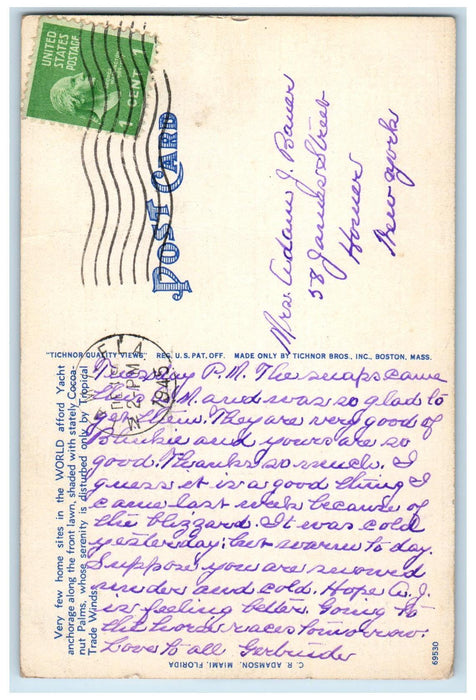 UNITED
STATES
POSTAGE
1 CENT 1
POST CARD
Mrs. Adam J. Bauer
58 James Street
Homer
New York
"TICHNOR QUALITY VIEWS" REG. U.S. PAT. OFF. MADE ONLY BY TICHNOR BROS., INC., BOSTON, MASS.
FLA
2 PM
1945
Very few home sites in the WORLD afford Yacht
anchorage along the front lawn, shaded with stately Cocoa-
nut Palms, whose serenity is disturbed only by Tropical
Trade Winds.
Tuesday P.M. The snaps came
this A.M. and was so glad to
get them. They are very good of
Blackie and yours are so
good. Thanks so much. I
guess it is a good thing I
came last week because of
the blizzard. It was cold
yesterday; but warm to day.
Suppose you are snowed
under and cold. Hope A. J.
is feeling better. Going to
the horse races tomorrow.
Love to all Gertrude
C. R. ADAMSON, MIAMI, FLORIDA
69530